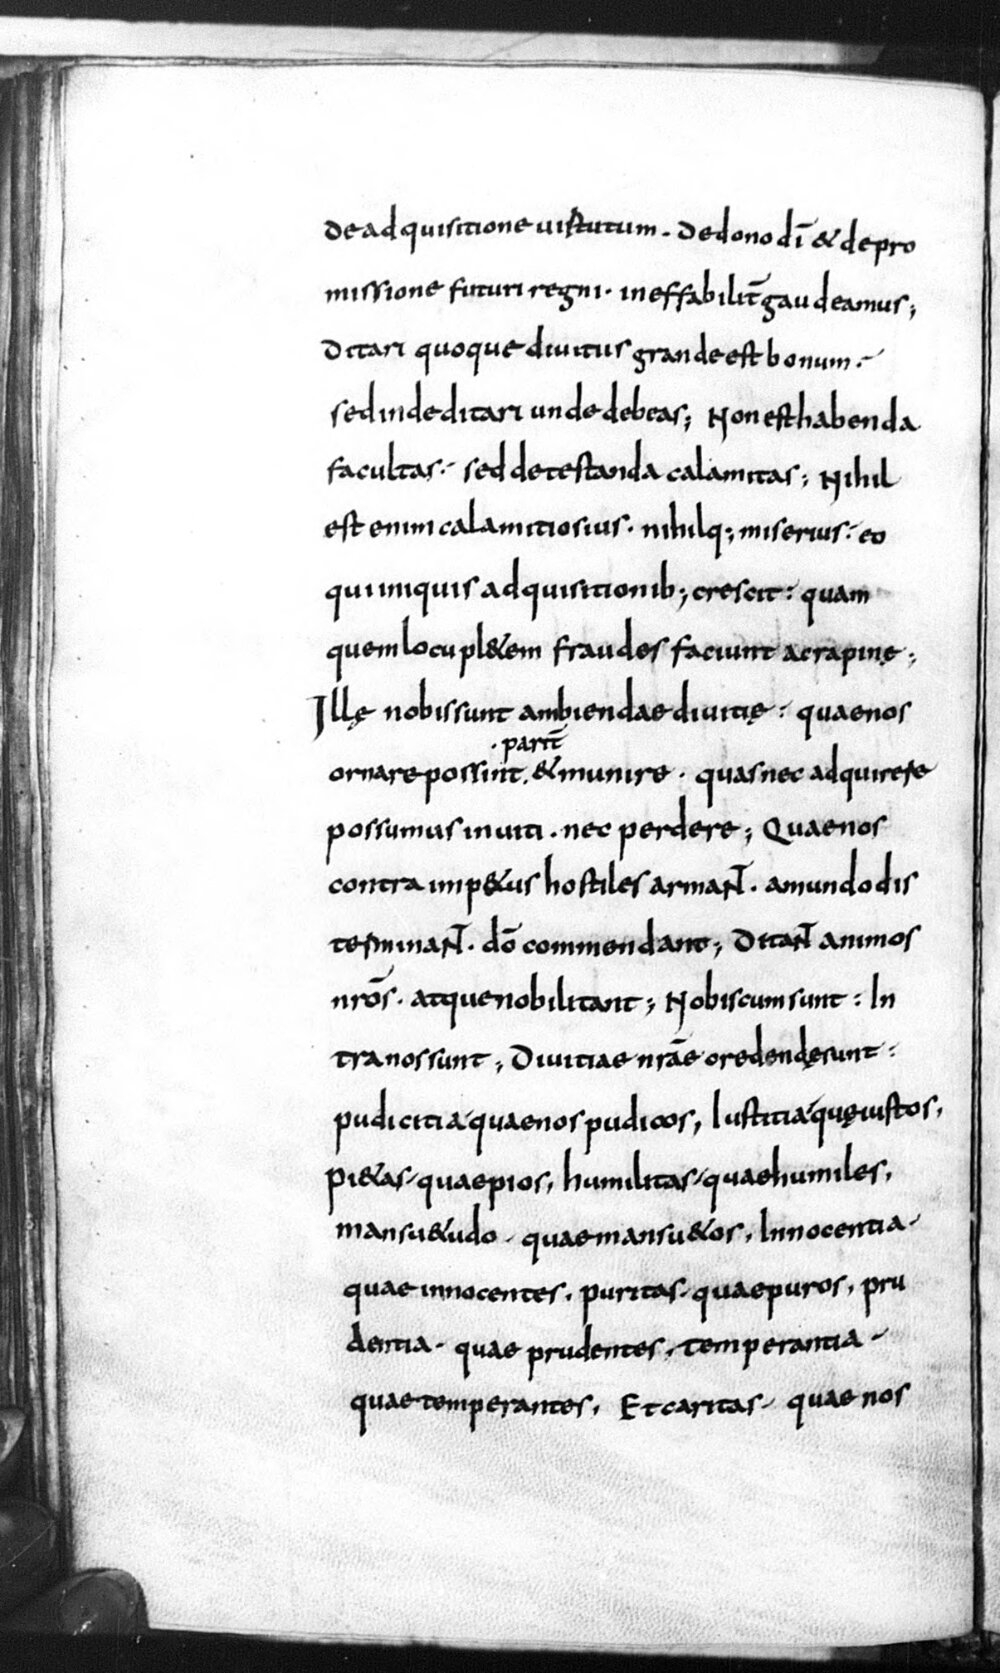 de adquisitione uirtutum. De dono dī & de pro
missione futuri regni. ineffabilit̄ gaudeamus;
Ditari quoque diuitiis grande est bonum.
sed inde ditari unde debeas; Non est habenda
facultas. sed detestanda calamitas; Nihil
est enim calamitiosius. nihilq; miserius. eo
qui iniquis adquisitionib; crescit: quam
quem locupl&em fraudes faciunt ac rapinę;
Illę nobis sunt ambiendae diuitię: quae nos
·parit̄
ornare possint. & munire. quas nec adquirere
possumus inuiti. nec perdere; Quae nos
contra imp&us hostiles armaN̄. a mundo dis
terminaN̄. dō commendant; DitaN̄ animos
nrōs. atque nobilitant; Nobiscum sunt: In
tra nos sunt; Diuitiae nrāe credendę sunt:
pudicitia quae nos pudicos, Iustitia quę iustos,
Pi&as quae pios, humilitas quae humiles,
mansu&udo quae mansu&os, Innocentia
quae innocentes, puritas quae puros, pru
dentia quae prudentes, temperantia
quae temperantes, Et caritas quae nos